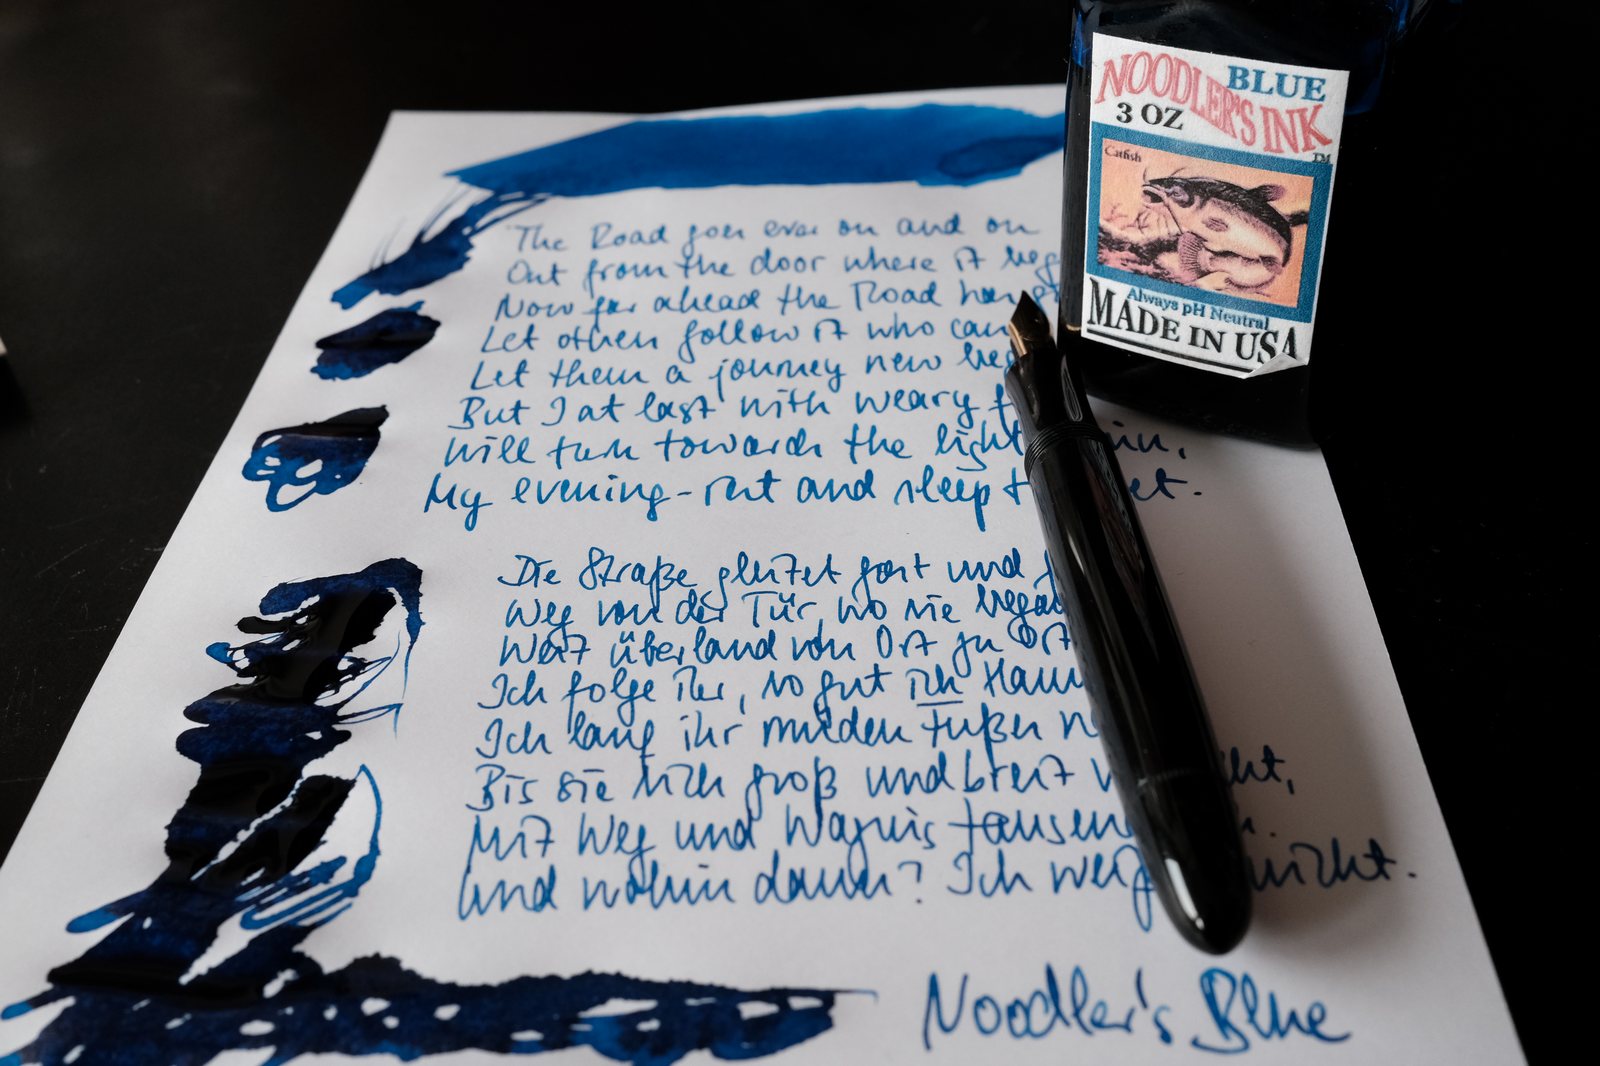 BLUE
NOODLER'S INK
TM
3 OZ
Catfish
Always pH Neutral
MADE IN USA
The Road goes ever on and on
Out from the door where it beg
Now far ahead the Road
Let others follow it who can
Let them a journey new beg
But I at last with weary f
Will turn towards the light
My evening-rest and sleep t
Die Straße gleitet fort und f
Weg von der Tür, wo sie began
Weit überland von Ort zu Ort
Ich folge ihr, so gut ich
Ich lang ihr müden Füßen n
Bis sie sich groß und breit v
Mit Weg und Wagnis tausen
Und wohin dann? Ich weiß nicht.
Noodler's Blue